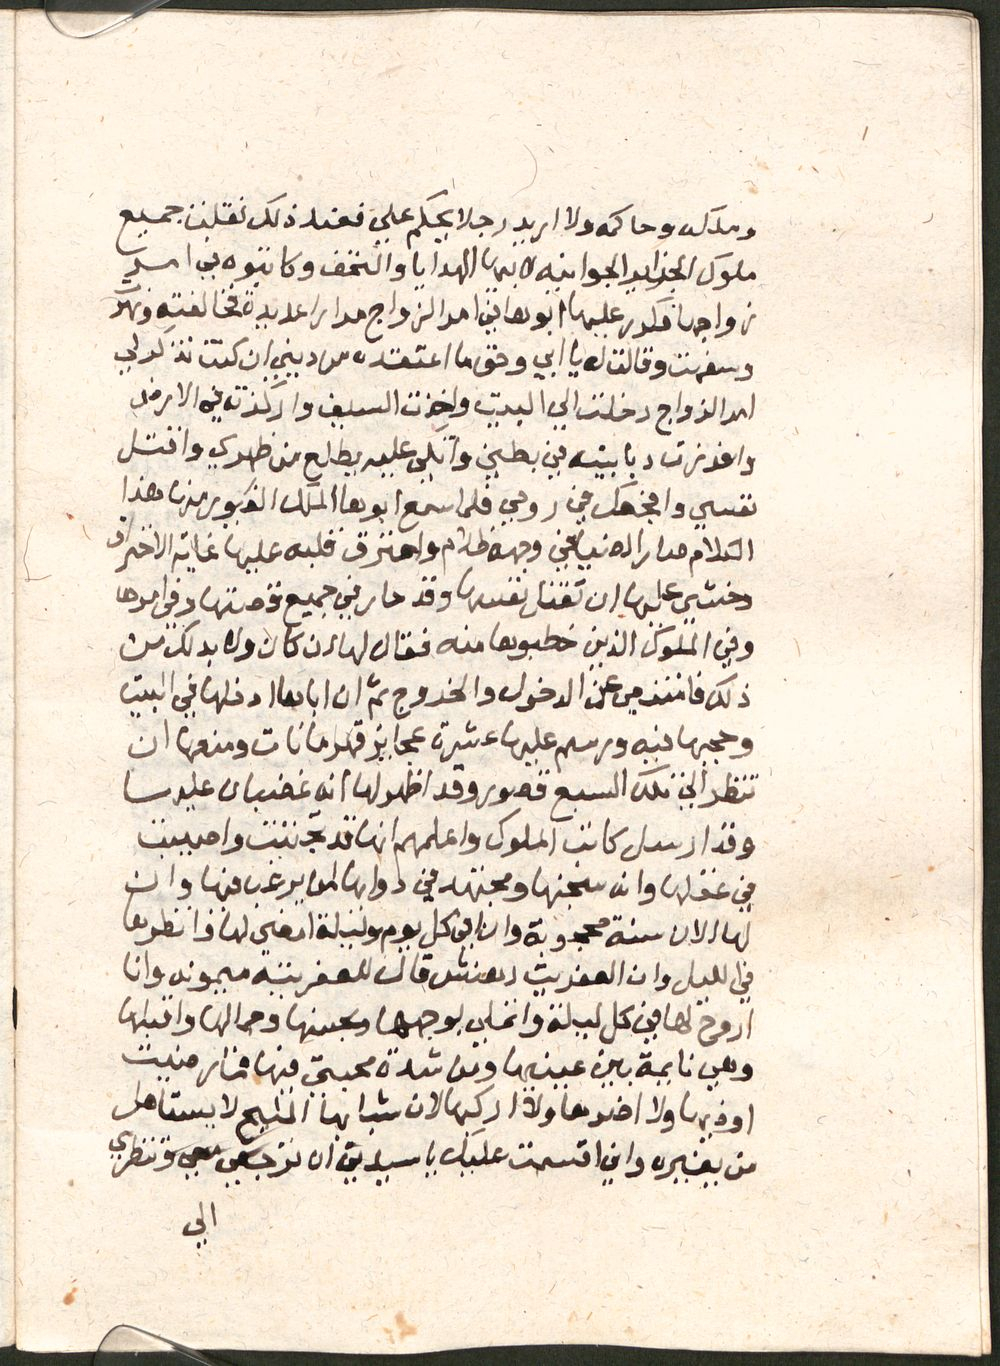 وملكه وحاكمه ولا اريد رجلا يحكم علي فعند ذلك نقلت جميع
ملوك الجزاير الجوانيه لابيها الهدايا والتحف وكاتبوه في امر
زواجها فكرر عليها ابوها في امر الزواج مرارا عديدة فخالفته ونهرت
وسفهت وقالت له يا ابي وحق ما اعتقده من ديني ان كنت تذكر لي
امر الزواج دخلت الي البيت واخذت السيف واركزته في الارض
واغرزت دبابيته في بطني واتكي عليه يطلع من ظهري واقتل
نفسي وافجعك في روحي فلما سمع ابوها الملك الغيور منها هذا
الكلام صار الدنيا في وجهه ظلام واحترق قلبه عليها غاية الاحتراق
وخشي عليها ان تقتل نفسها وقد حار في جميع قصتها وفي امرها
وفي الملوك الذين خطبوها منه فقال لها ان كان ولا بد لك من
ذلك فامتنعي عن الدخول والخروج ثم ان اباها ادخلها في البيت
وحجبها فيه ورسم عليها عشرة عجايز قهرمانات ومنعها ان
تنظر الي تلك السبع قصور وقد اظهر لها انه غضبان عليها
وقد ارسل كاتب الملوك واعلمهم انها قد تجننت واصيبت
في عقلها وانه سجنها ومجتهد في دوايها من يرغب فيها وان
لها الان سنة محجوبة وان في كل يوم وليلة امضي لها وانظرها
في الليل وان العفريت دهنش قال للعفريته ميمونه وانا
اروح لها في كل ليلة واتملي بوجهها وبحسنها وجمالها واقبلها
وهي نايمة بين عينيها ومن شدة محبتي فيها ما رضيت
اوذيها ولا اضرها ولا اركبها لان شبابها المليح لا يستاهل
من يغيره واني اقسمت عليك يا سيدتي ان ترجعي معي وتنظري
الي